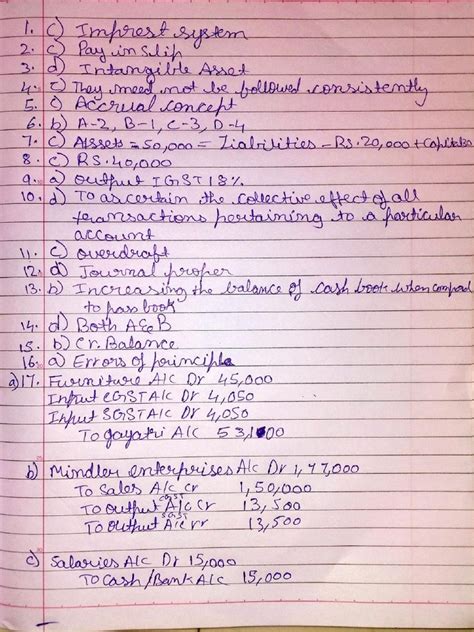 1. c) Imprest system
2. c) Pay in Slip
3. d) Intangible Asset
4. c) They need not be followed consistently
5. c) Accrual concept
6. b) A-2, B-1, C-3, D-4
7. c) Assets = 50,000 = Liabilities - Rs. 20,000 + Capital
8. c) RS. 40,000
9. a) output IGST 18%
10. d) To ascertain the collective effect of all
transactions pertaining to a particular
account
11. c) overdraft
12. d) Journal proper
13. b) Increasing the balance of cash book when compared
to pass book
14. d) Both A & B
15. b) Cr. Balance
16. a) Errors of principle
a) 17. Furniture A/c Dr 45,000
Input CGST A/c Dr 4,050
Input SGST A/c Dr 4,050
To gayatri A/c 53,100
b) Mindler enterprises A/c Dr 1,77,000
To Sales A/c cr 1,50,000
To output CGST A/c Cr 13,500
To output SGST A/c cr 13,500
c) Salaries A/c Dr 15,000
To Cash/Bank A/c 15,000